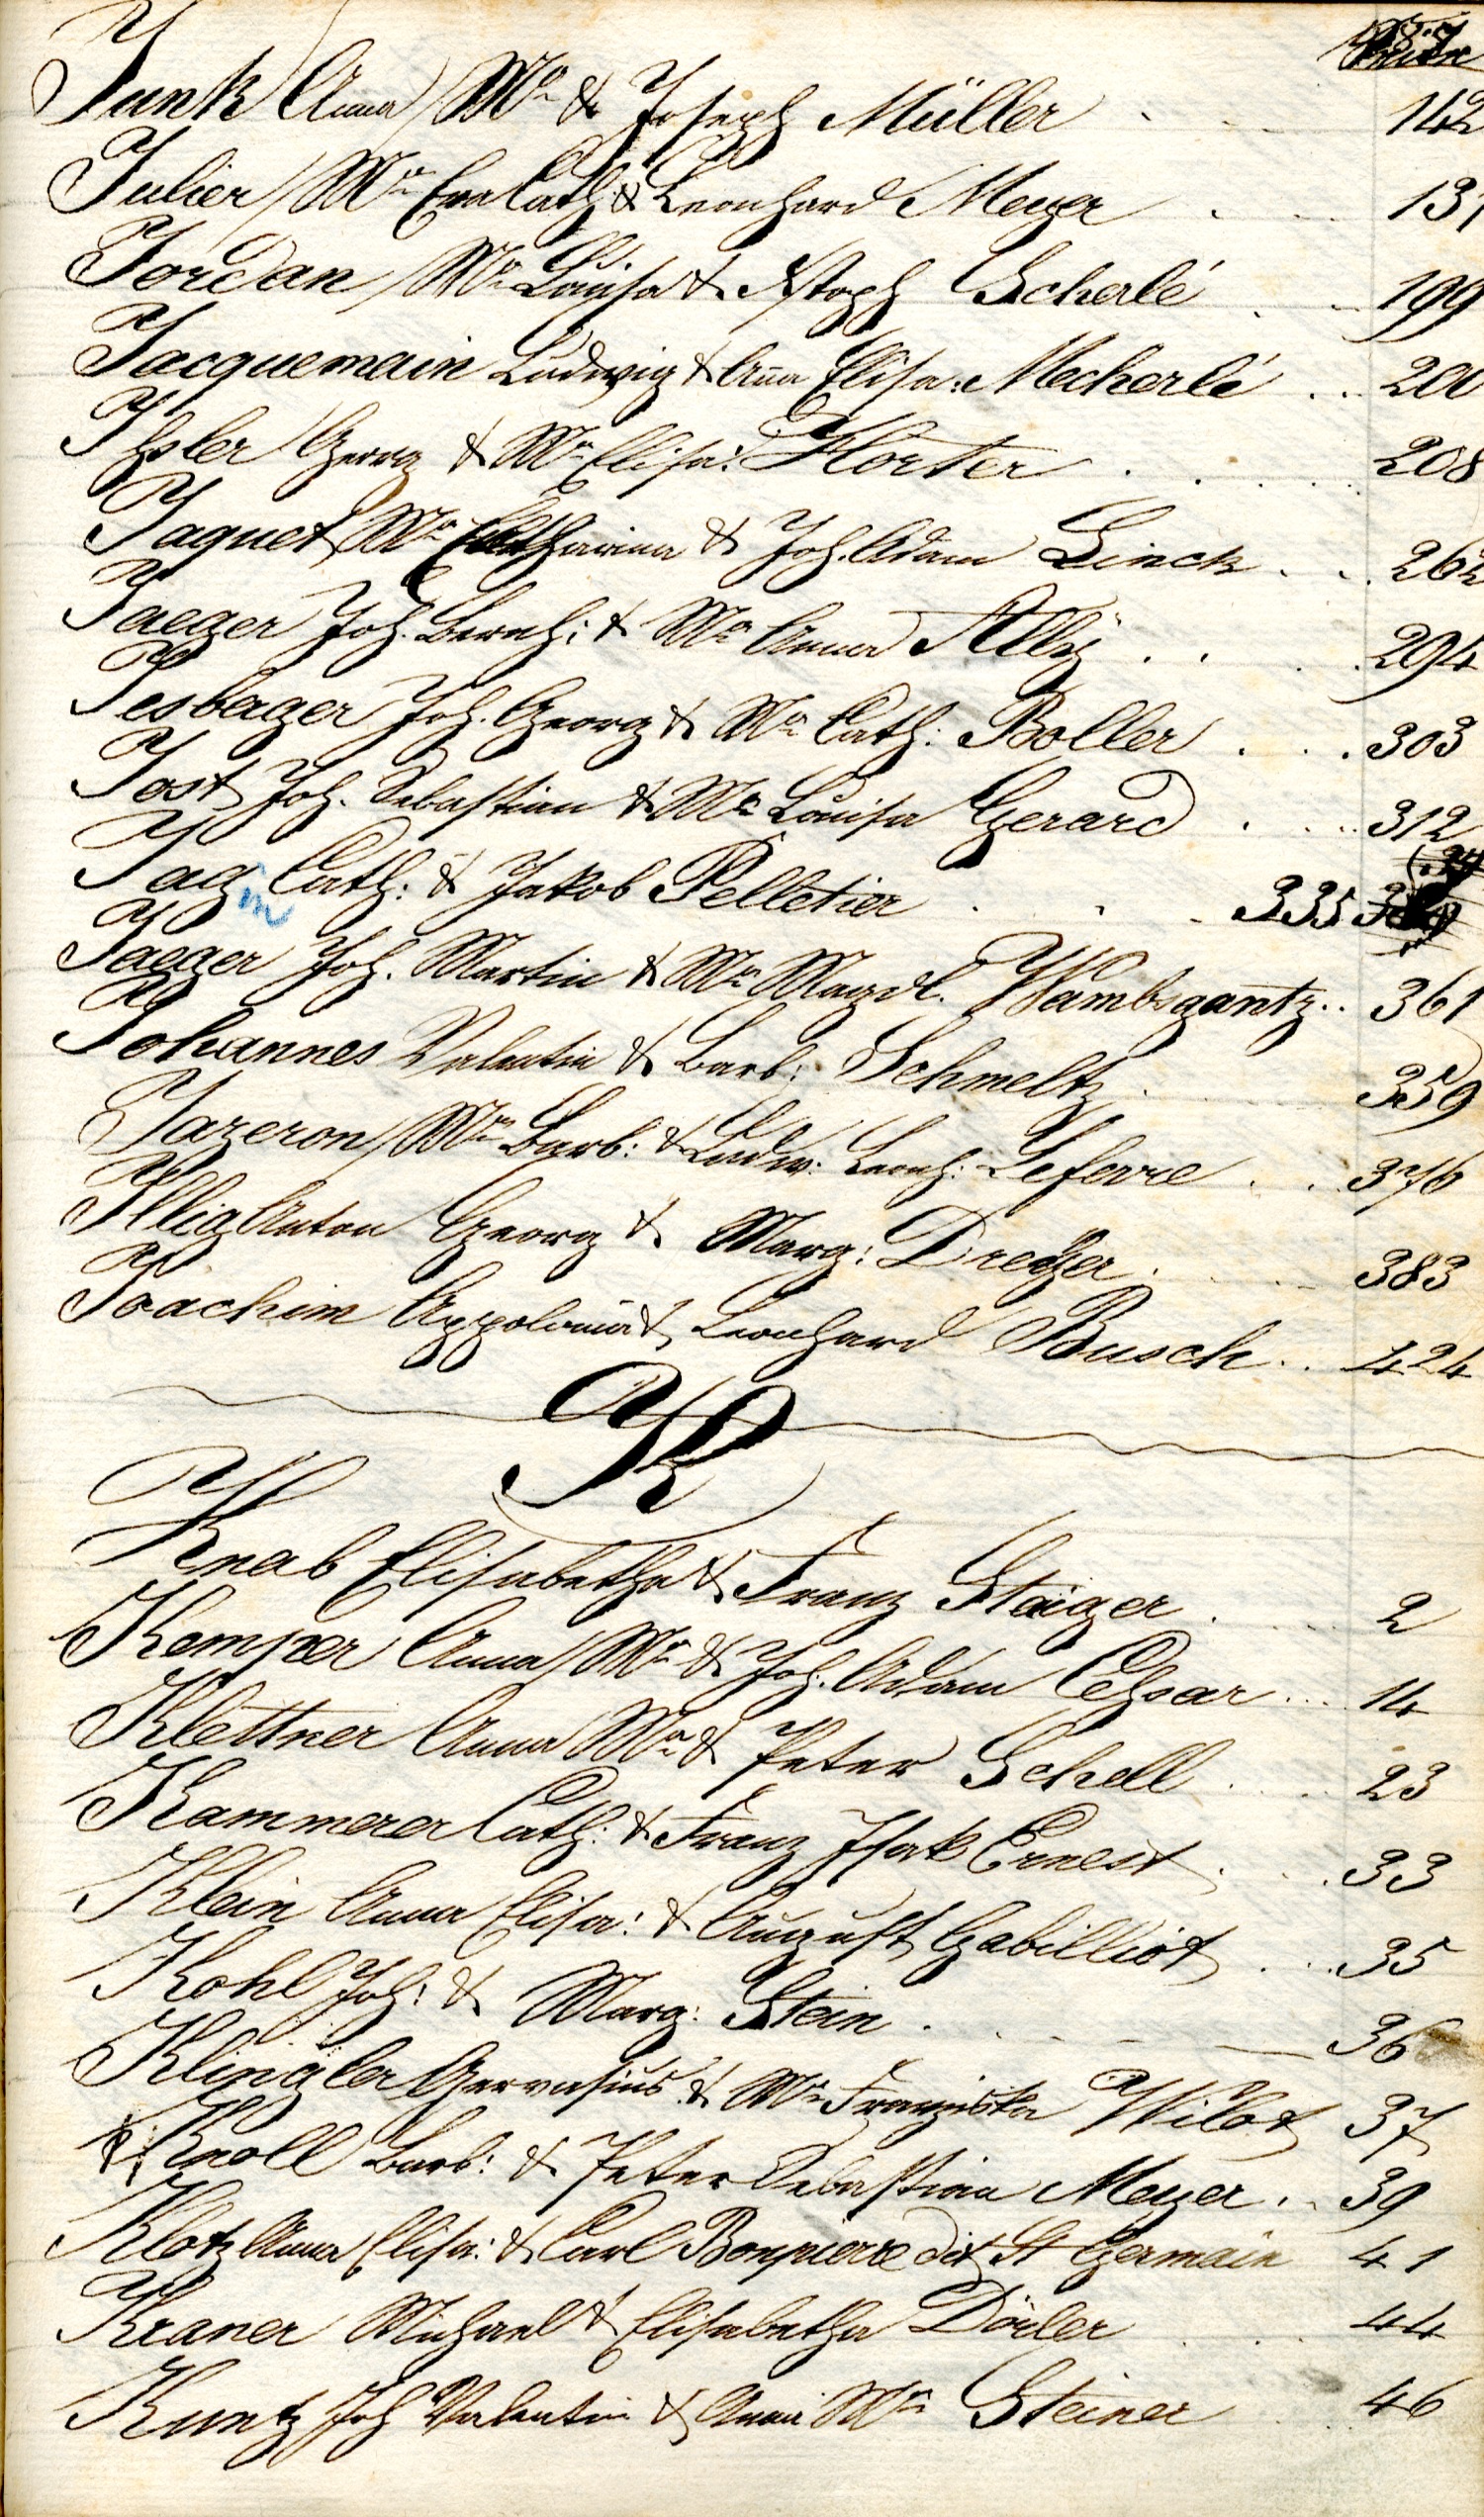 Junk Anna Mª & Joseph Müller . . . 142
Julier Mª Eva Cath: & Leonhard Meyer . . . 131
Jordan Mª Louisa & Xstoph Scherlé . . 199
Jacquemain Ludwig & Aña Elisa: Mecherlé . . 200
Ihsler Georg & Mª Elisa: Horter . . . 208
Jaquet Mª Catharina & Joh. Adam Linck . . . 262
Jaeger Joh. Bernh: & Mª Anna Alby . . . 294
Jesberger Joh. Georg & Mª Cath: Boller . . . 303
Jost Joh. Sebastian & Mª Louisa Gerard . . . 312
Jag Cath: & Jakob Pelletier . . . 335
Jaeger Joh. Martin & Mª Magdl. Wambsgantz . . 361
Johannes Valentin & Barb: Schmeltz . 359
Jazeron Mª Barb: & Ludw: Leonh: Lefevre . . . 376
Illig Anton Georg & Marg: Dreyer . . 383
Joachim Appolonia & Leonhard Busch . . 424
K
Knab Elisabetha & Franz Staiger . . . 2
Kemper Anna Mª & Joh. Adam Cesar . . . 14
Klettner Anna Mª & Peter Schell . . . 23
Kammerer Cath: & Franz Isak Ernest . . . 33
Klein Anna Elisa: & August Gabilliot . . . 35
Kohl Joh: & Marg: Stein . . . 36
Klingler Gervasius & Mª Franziska Wilot 37
Knoll Barb: & Peter Sebastian Meyer . . 39
Klotz Anna Elisa: & Carl Bonpierre dit St Germain 41
Kraner Michael & Elisabetha Dörler . . . 44
Kuntz Joh Valentin & Anna Mª Steiner . . 46